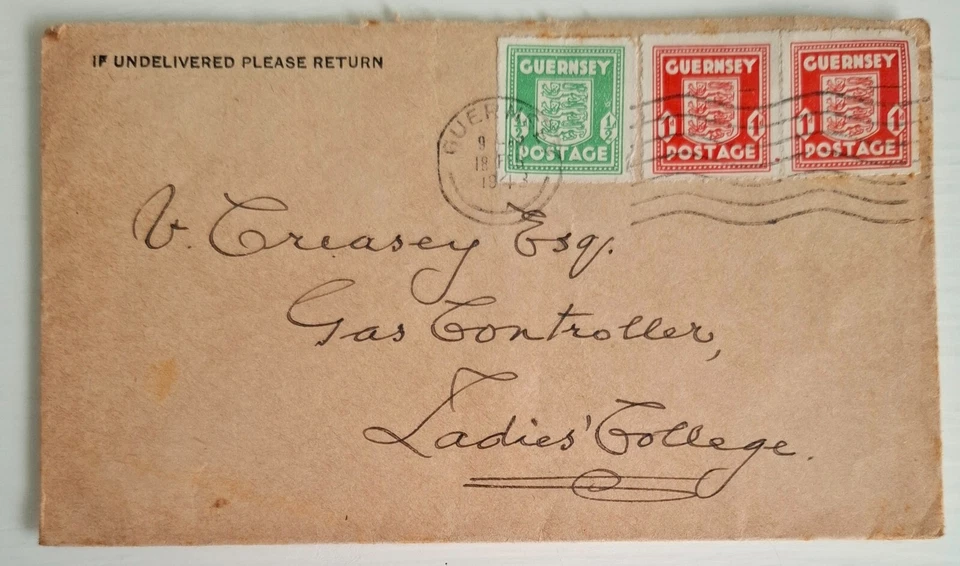 IF UNDELIVERED PLEASE RETURN
GUERNSEY
½ ½
POSTAGE
GUERNSEY
1D 1D
POSTAGE
GUERNSEY
1D 1D
POSTAGE
V. Creasey Esq.
Gas Controller,
Ladies' College.